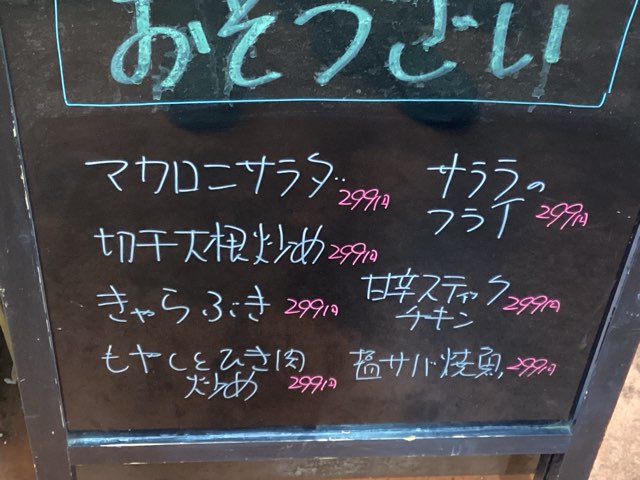 おそうざい
マカロニサラダ 299円
切干大根炒め 299円
きゃらぶき 299円
もやしとひき肉
炒め 299円
サララの
フライ 299円
甘辛スティック
チキン 299円
塩サバ焼魚 299円